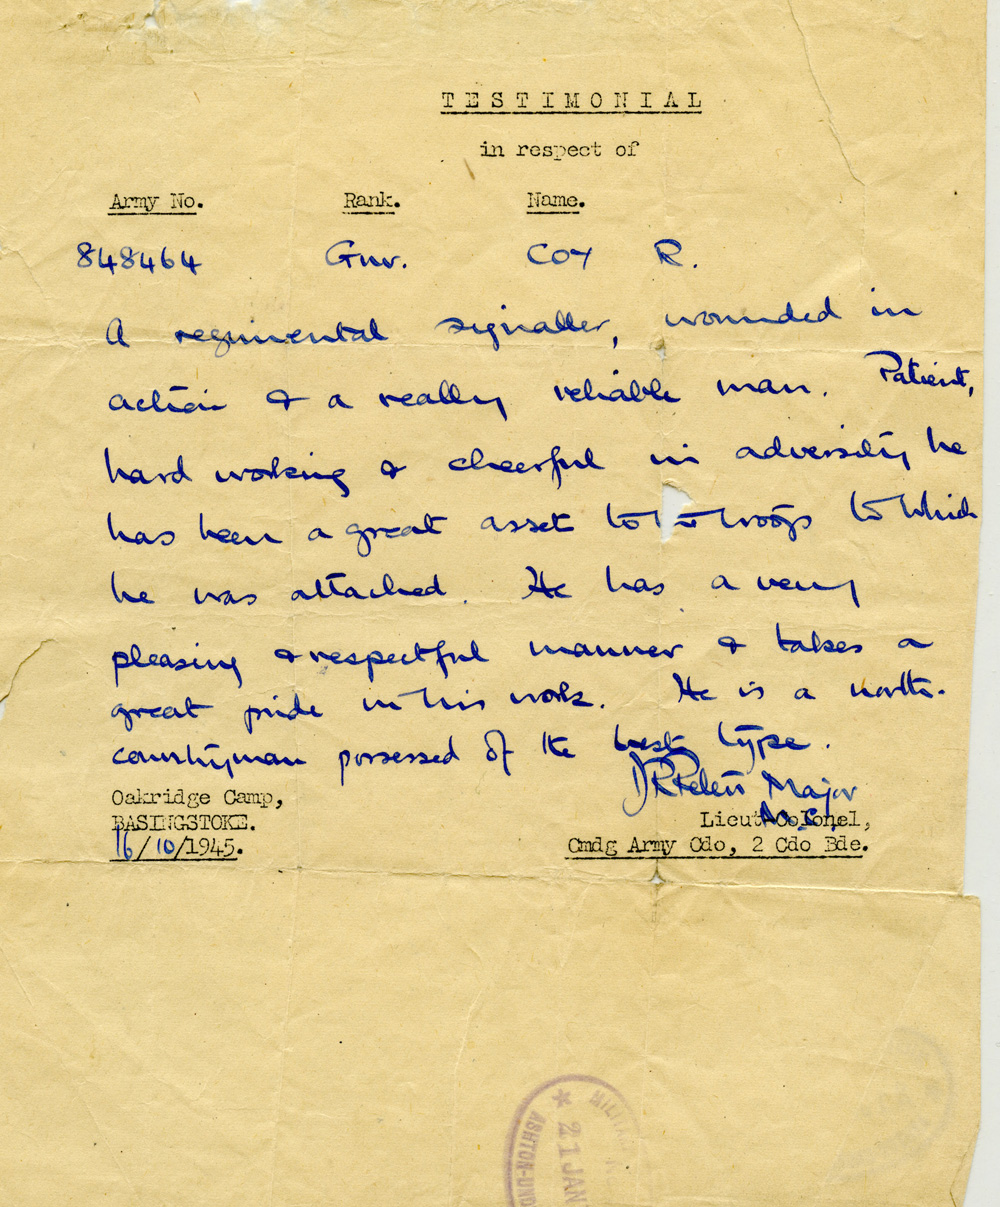 TESTIMONIAL
in respect of
Army No. Rank. Name.
848464 Gnr. COX R.
A regimental signaller, wounded in
action & a really reliable man. Patient,
hard working & cheerful in adversity he
has been a great asset to troops to which
he was attached. He has a very
pleasing & respectful manner & takes a
great pride in his work. He is a north-
countryman possessed of the best type.
Major
Oakridge Camp,
BASINGSTOKE.
Lieut-Colonel,
16/10/1945.
Cmdg Army Cdo, 2 Cdo Bde.
21 JAN